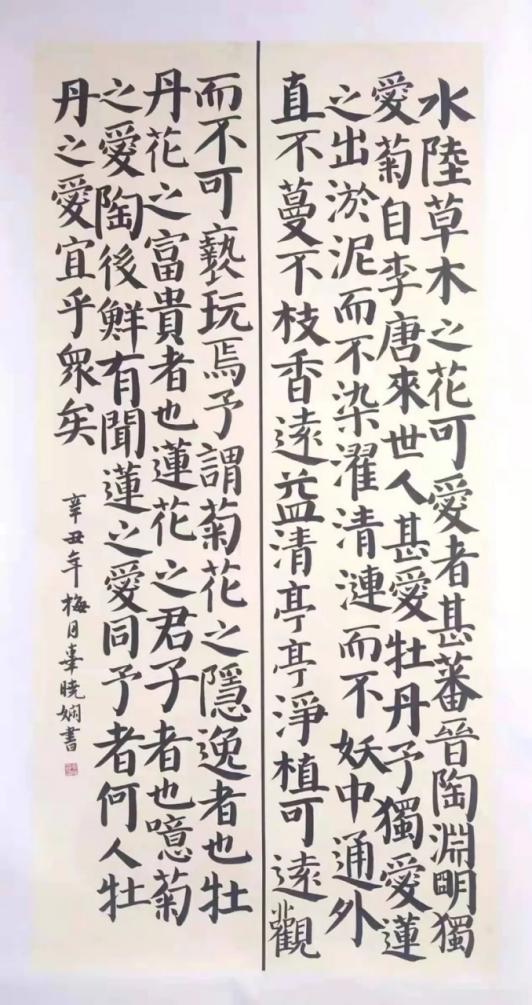 水陸草木之花可愛者甚蕃晉陶淵明獨
愛菊自李唐來世人甚愛牡丹予獨愛蓮
之出淤泥而不染濯清漣而不妖中通外
直不蔓不枝香遠益清亭亭淨植可遠觀
而不可褻玩焉予謂菊花之隱逸者也牡
丹花之富貴者也蓮花之君子者也噫菊
之愛陶後鮮有聞蓮之愛同予者何人牡
丹之愛宜乎眾矣
辛丑年梅月辜曉嫻書